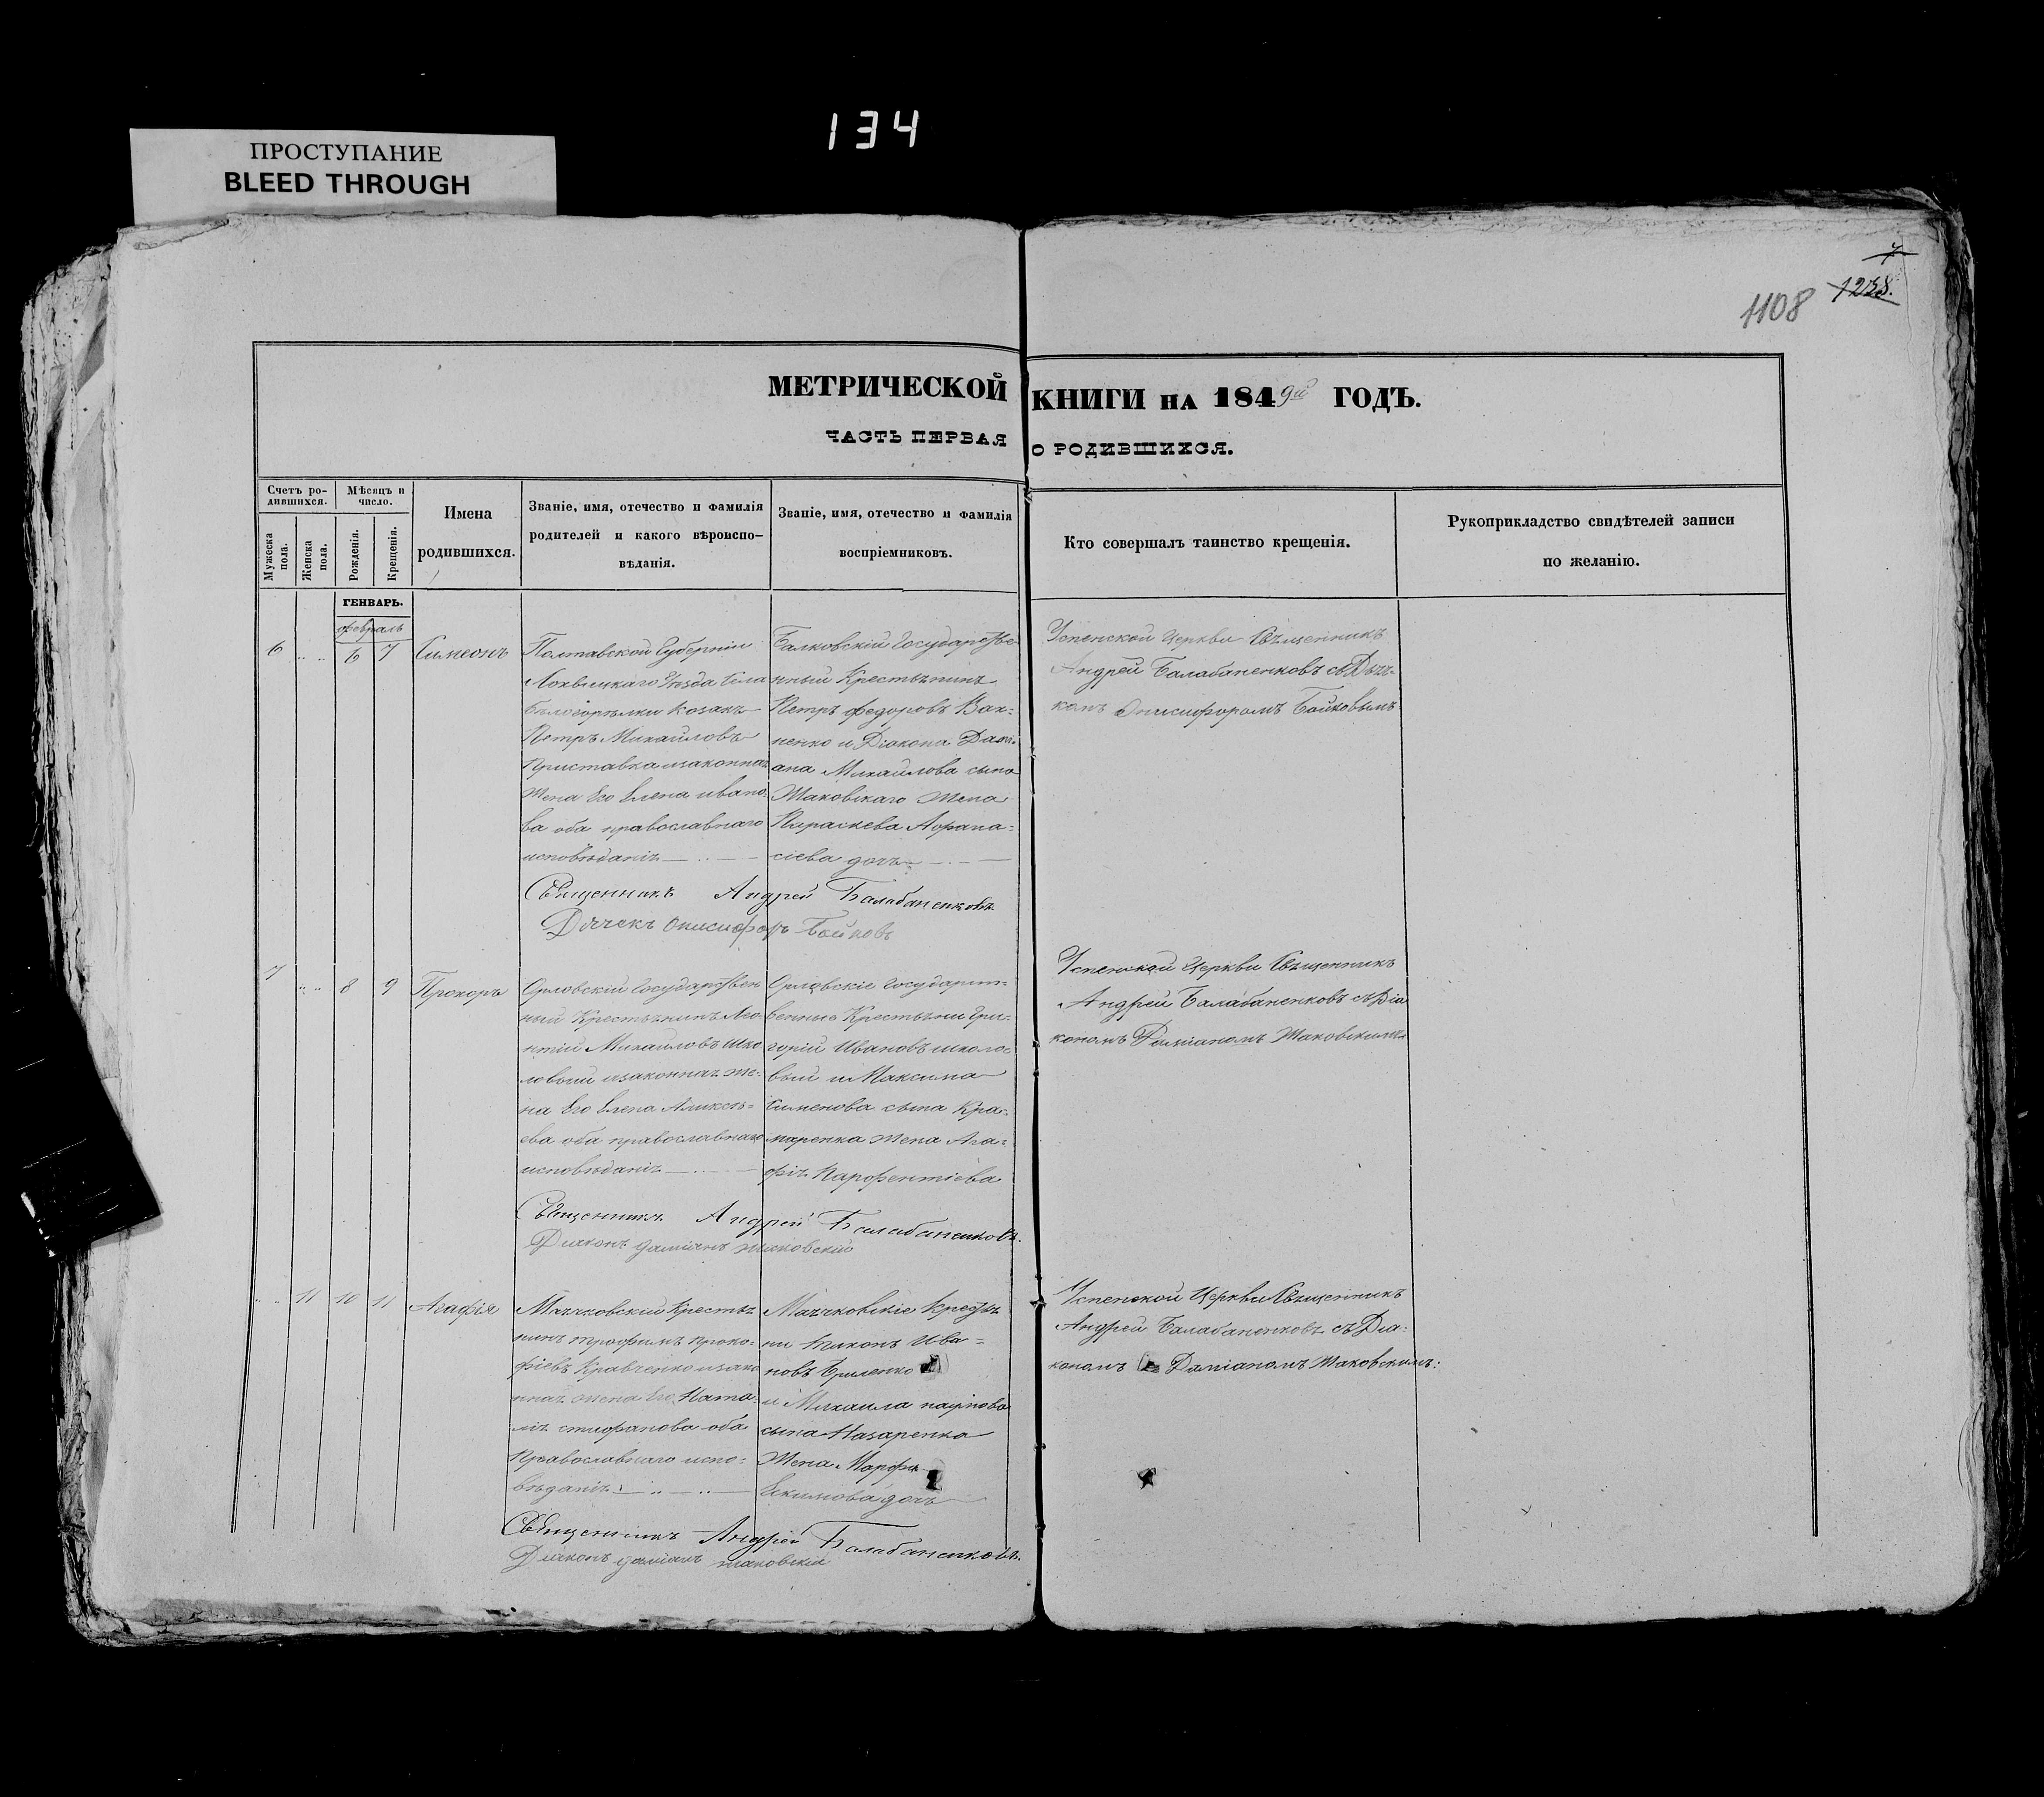 134
ПРОСТУПАНИЕ
BLEED THROUGH
1108
1238.
МЕТРИЧЕСКОЙ КНИГИ НА 1849й ГОДЪ.
ЧАСТЬ ПЕРВАЯ О РОДИВШИХСЯ.
Счетъ ро-
дившихся.
Мужеска пола.
Женска пола.
Мѣсяцъ и
число.
Рожденія.
Крещенія.
Имена
родившихся.
Званіе, имя, отечество и фамилія
родителей и какого вѣроиспо-
вѣданія.
Званіе, имя, отечество и фамилія
воспріемниковъ.
Кто совершалъ таинство крещенія.
Рукоприкладство свидѣтелей записи
по желанію.
ГЕНВАРЬ.
февраль
6
6
7
Симеонъ
Полтавской Губерніи
Лохвицкаго Уѣзда Села
козакъ
Петръ Михаиловъ
Приставка изаконная
Жена Его Елена ивано-
ва оба православнаго
исповѣданія
Государстве-
нный Крестьянинъ
Петръ федоровъ
ненко и Діакона Дамі-
ана Михаилова сына
Маковскаго Жена
Параскева Афана-
сіева дочь
Успенской Церкви Свѣщенникъ
Андрей Балабаненковъ съ Дьяч-
комъ Онисифоромъ Бойковымъ
Священникъ Андрей Балабаненковъ
Дячекъ Онисифоръ Бойковъ
7
8
9
Прохоръ
Орловскій Государствен
ный Крестьянинъ Лео-
нтій Михаиловъ Шко
ловый изаконная же-
на Его Елена Аликсѣ-
ева оба православнаго
исповѣданія
Орловскіе Государст-
венные Крестьяни Гри-
горій Ивановъ школо-
вый и Максима
Сименова сына Кра-
маренка жена Ага-
фія Парфентіева
Успенской Церкви Свѣщенникъ
Андрей Балабаненковъ съ Діа
кономъ Даміаномъ Маковскимъ
Священникъ Андрей Балабаненковъ.
Діаконъ Даміанъ Маковскій
11
10
11
Агафія
Маячковскій Кресть
нинъ Трофимъ Проко-
фіевъ Кравченко изако
нная жена Его Ната-
лія стифанова оба
Православнаго испо-
вѣданія
Маячковскіе Кресть
ни Тихонъ Ива-
новъ
и Михаила наумова
сына Назаренка
Жена Марфа
Екимова дочь
Успенской Церкви Свѣщенникъ
Андрей Балабаненковъ съ Діа-
кономъ Даміаномъ Маковскимъ:
Священникъ Андрей Балабаненковъ.
Діаконъ Даміанъ Маковскій